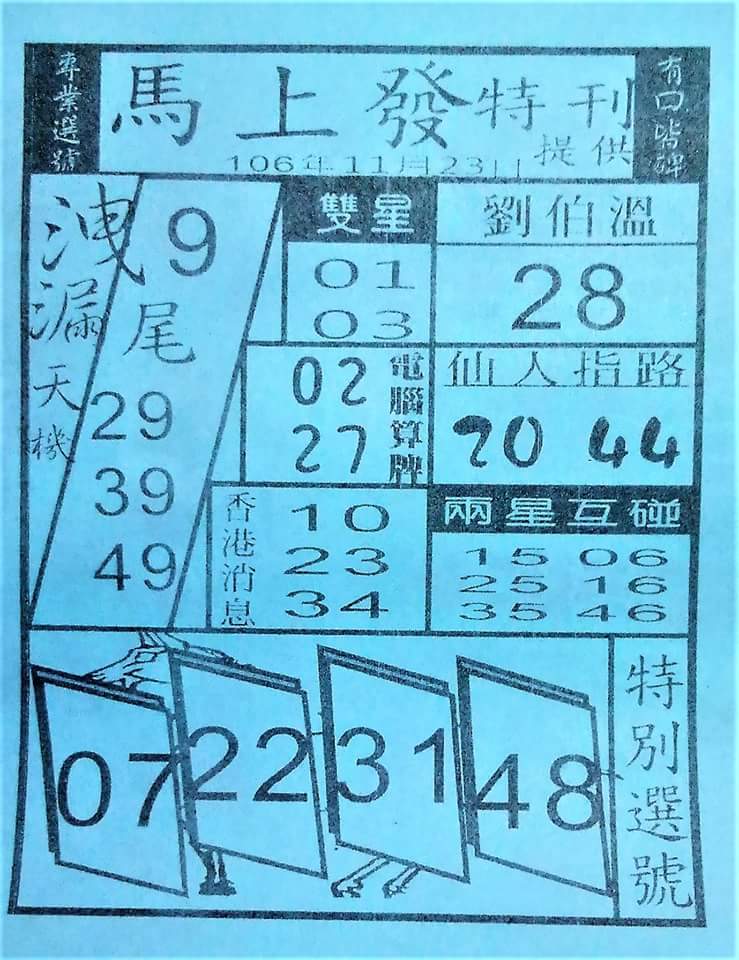 專業選號
馬上發特刊
提供
106年11月23日
有口皆碑
洩漏天機
9
尾
29
39
49
雙星
01
03
劉伯溫
28
02
27
電腦算牌
仙人指路
20 44
香港消息
10
23
34
兩星互碰
15 06
25 16
35 46
07
22
31
48
特別選號